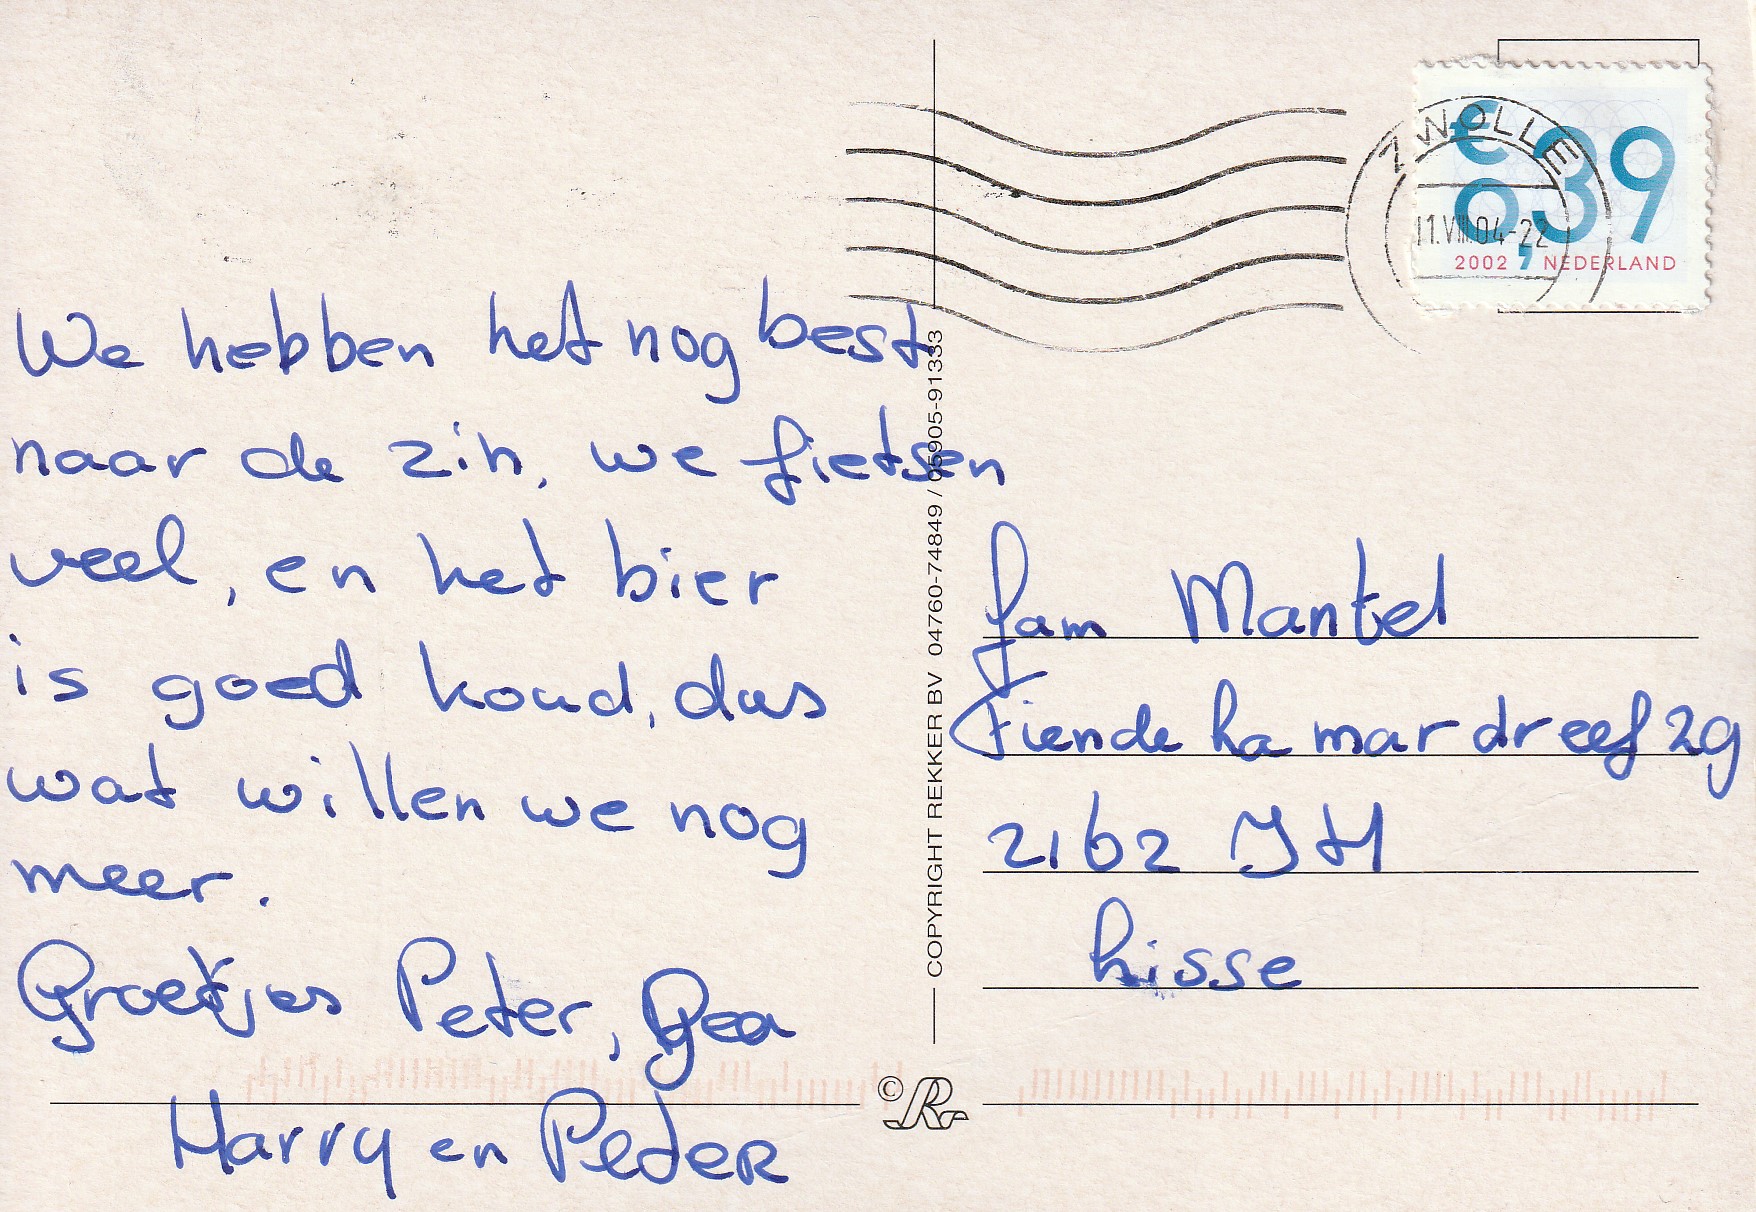 We hebben het nog best
naar de zin, we fietsen
veel, en het bier
is goed koud, dus
wat willen we nog
meer.
Groetjes Peter, Gea
Harry en Peter
COPYRIGHT REKKER BV 04760-74849 / 05905-91333
ZWOLLE
11.VIII.04-22
€ 0,39
2002 NEDERLAND
fam Mantel
Fiende ha mar dreef 29
2162 JH
Lisse
© R